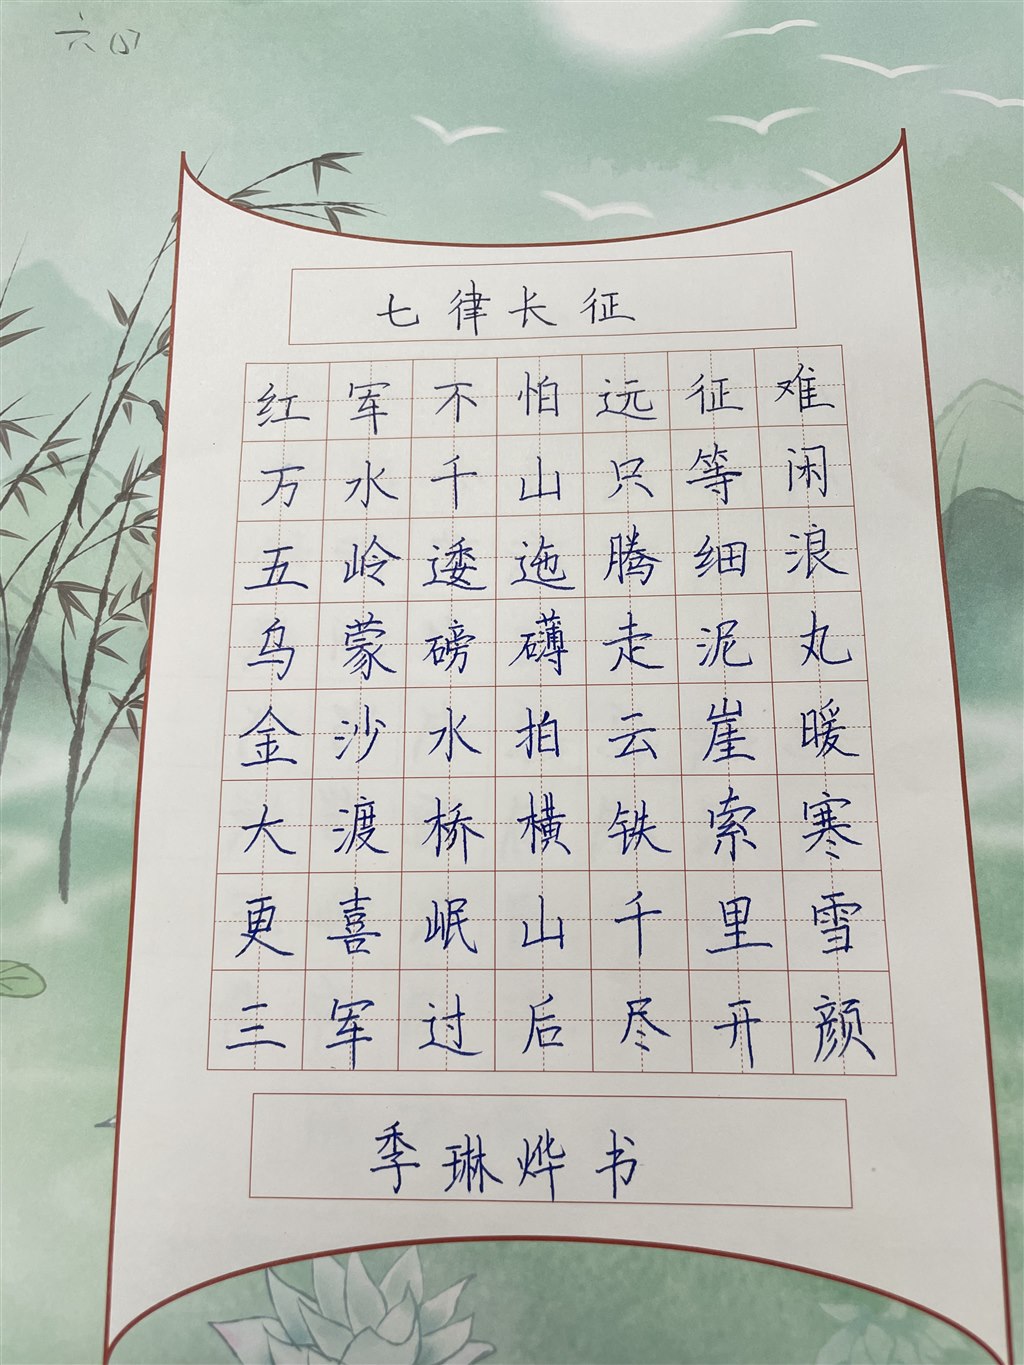 六四
七律长征
红军不怕远征难
万水千山只等闲
五岭逶迤腾细浪
乌蒙磅礴走泥丸
金沙水拍云崖暖
大渡桥横铁索寒
更喜岷山千里雪
三军过后尽开颜
季琳烨书